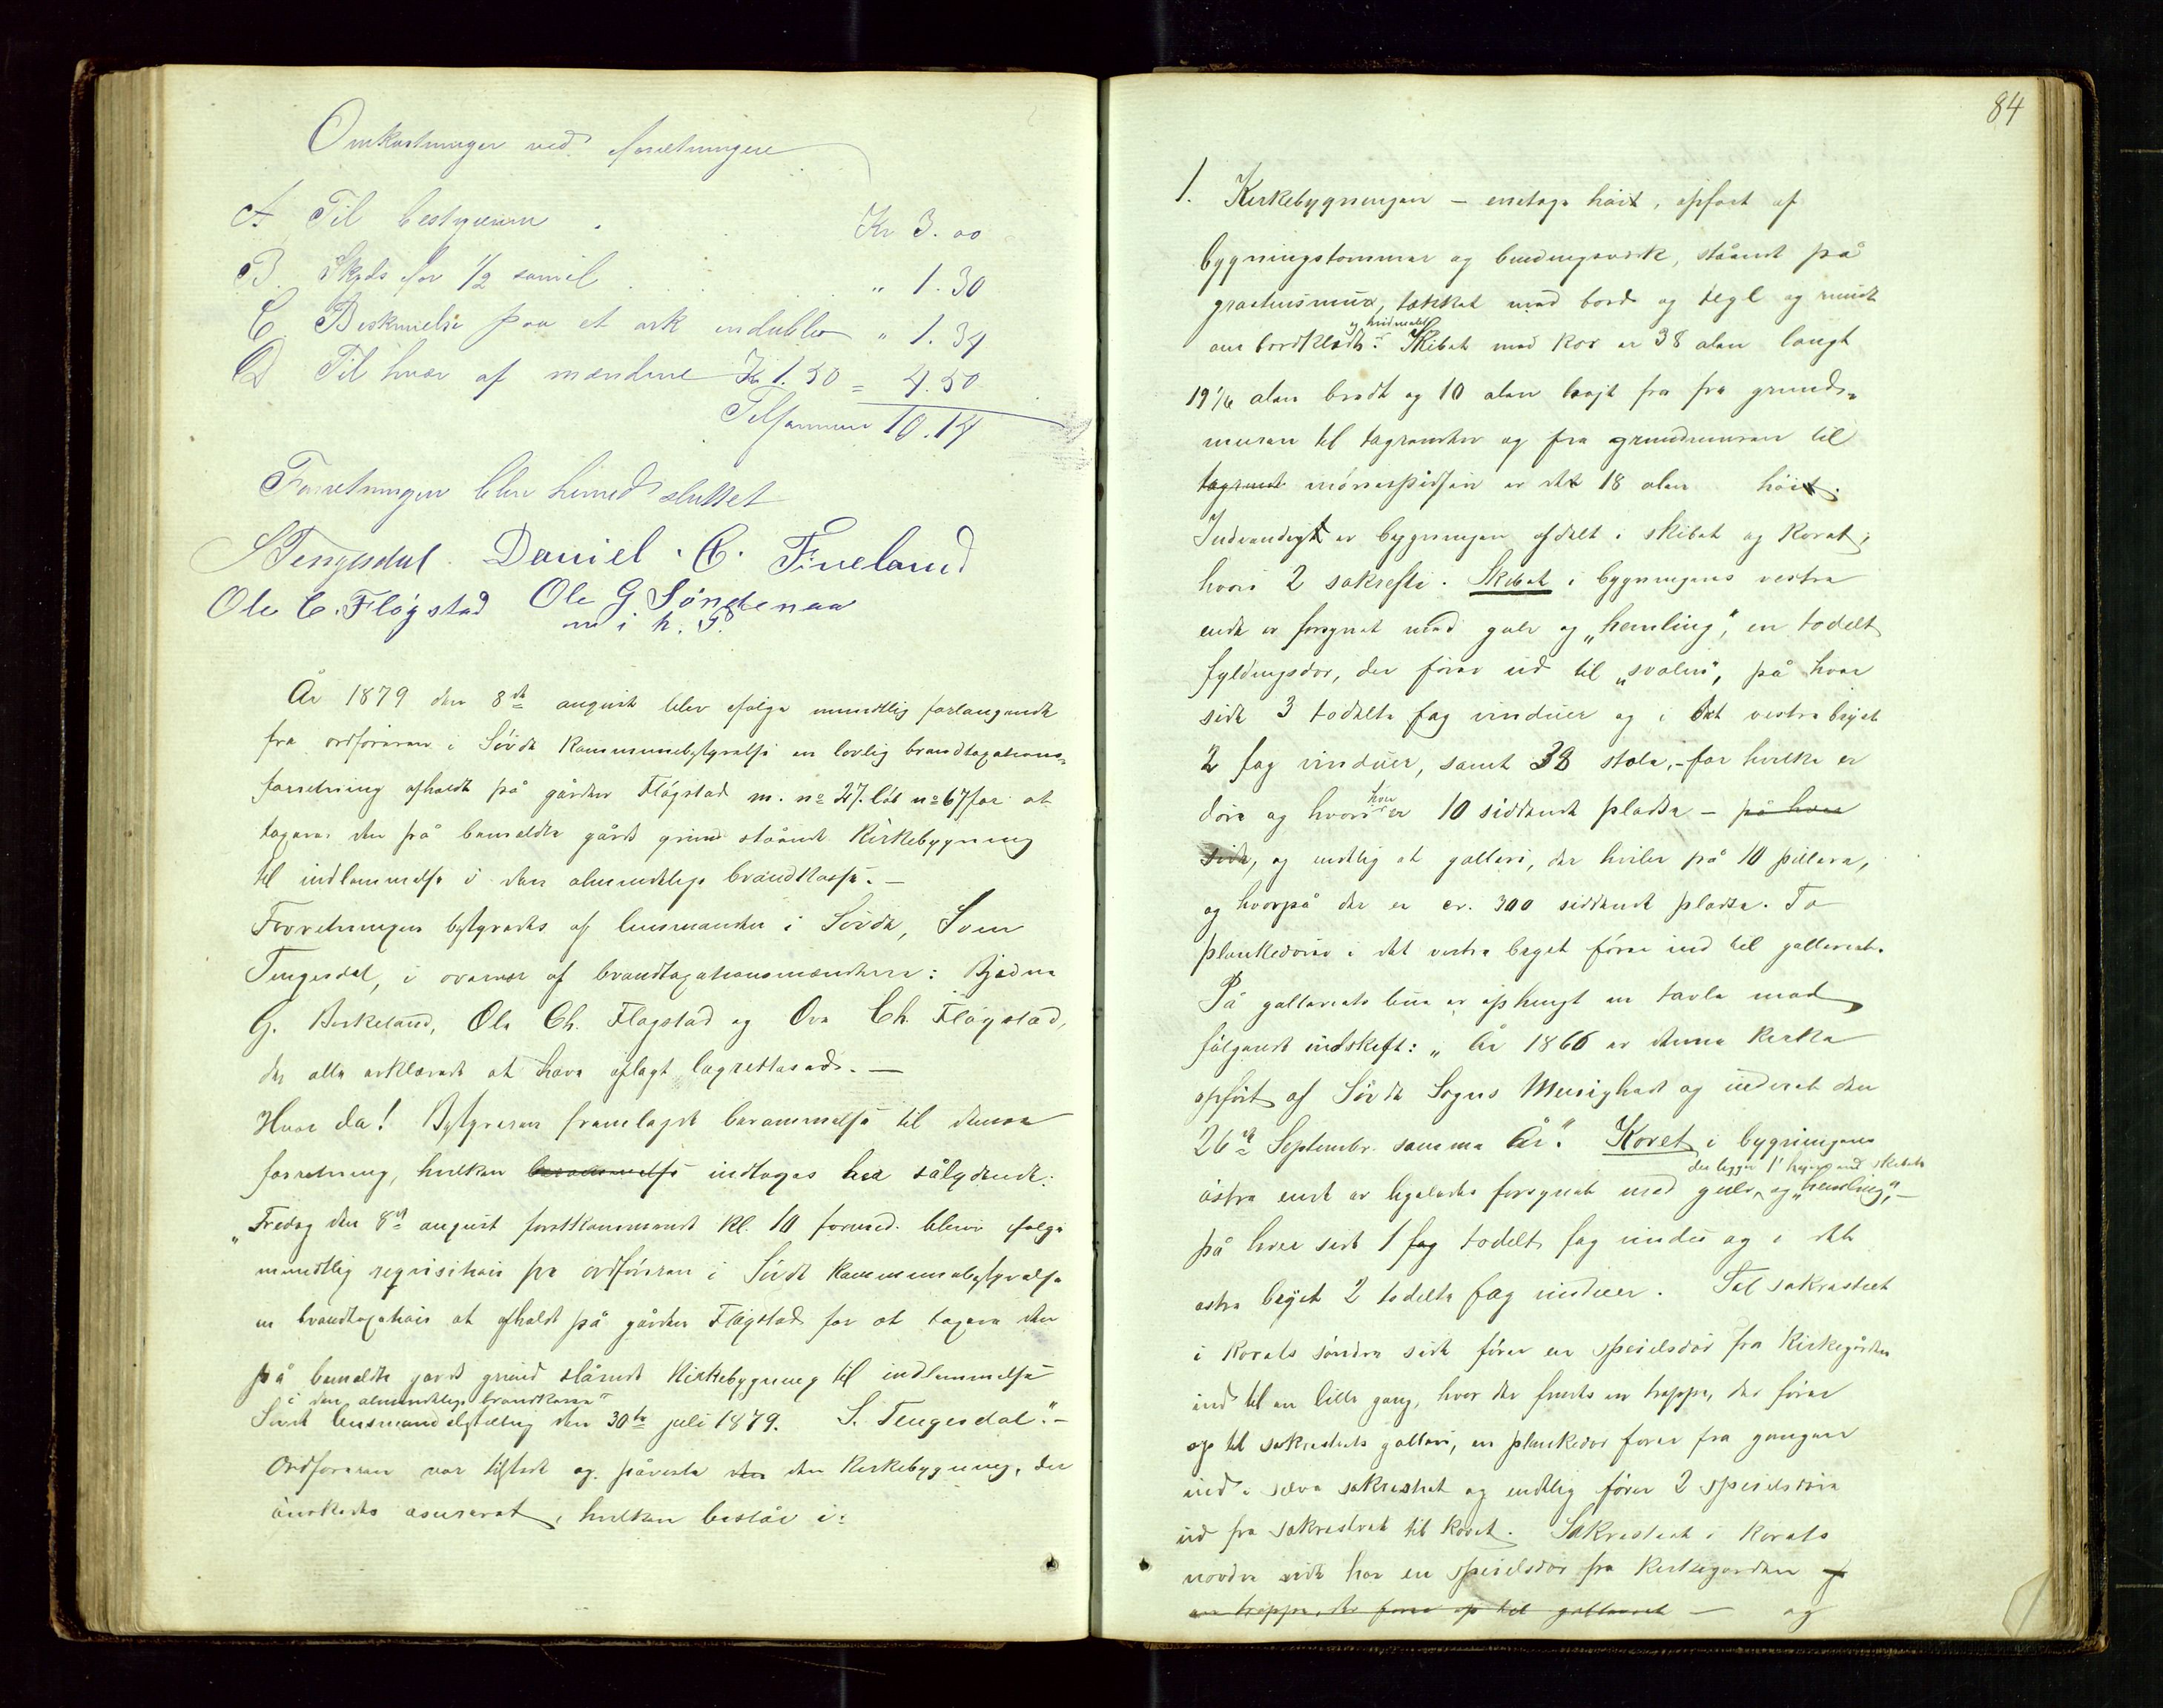 Omkostninger ved forretningen
A. Til bestyreren . Kr 3. 00
B. Skyds for 1/2 samil " 1. 30
C. Beskrivelse paa et ark in dublo " 1. 34
D Til hver af mændene Kr 1. 50 = 4. 50
Tilsammen 10. 14
Forretningen blev hermed sluttet
S Tengesdal. Daniel . C. Fiveland
Ole C. Fløgstad Ole G Søndenaa
m i h. P.
År 1879 den 8de august blev ifølge mundtlig forlangende
fra ordføreren i Søvde kommunebestyrelse en lovlig brandtaxations-
forretning afholdt på gården Fløgstad m. no 27. løb no 67 for at
taxere den på bemeldte gårds grund stående kirkebygning
til indlemmelse i den almindelige brandkasse. —
Forretningen bestyredes af lensmanden i Søvde, Sven
Tengesdal, i overvær af brandtaxationsmændene:
G. Birkeland, Ole Ch. Fløgstad og Ove Ch. Fløgstad,
der alle erklærede at have aflagt lagrettesed. —
Hvor da! Bestyreren fremlagde berammelse til denne
forretning, hvilken berammelse indtages her sålydende:
"Fredag den 8de august førstkommende kl. 10 formid. bliver ifølge
mundtlig reqvisition fra ordføreren i Søvde kommunebestyrelse
en brandtaxation at afholde på gården Fløgstad for at taxere den
på bemeldte gards grund stående kirkebygning til indlemmelse
i den almindelige brandkasse"
Søvde lensmandsbestilling den 30te juli 1879. S. Tengesdal". —
Ordføreren var tilstede og påviste den den kirkebygning, der
ønskedes asureret, hvilken består i:
84
1. Kirkebygningen — enetage høit, opført af
bygningstømmer og bindingsverk, stående på
gråstensmur, tækket med bord og tegl og rundt
og hvidmalet
om bordklædt. Skibet med kor er 38 alen langt
19 1/6 alen bredt og 10 alen højt fra fra grund-
muren til tagrenden og fra grundmuren til
tagrend mønnespidsen er det 18 alen høit.
Indvendigt er bygningen afdelt i skibet og koret,
hvori 2 sakresti. Skibet i bygningens vestre
ende er forsynet med gulv og "hemling", en todelt
fyldingsdør, der fører ud til "svalen", på hver
side 3 todelte fag vinduer og i det vestre bryst
2 fag vinduer, samt 38 stole, - for hvilke er
hver
døre og hvori er 10 siddende pladse — på hver
side, og endelig et galleri, der hviler på 10 pillere,
og hvorpå der er cr. 300 siddende pladse. To
plankedøre i det vestre bryst fører ind til galleriet.
På galleriets brua er ophengt en tavle med
følgende indskrift: "År 1866 er denne kirke
opført af Søvde Sogns Menighed og indviet den
26de Septembr. samme År". Koret i bygningens
der ligger 1' højere end skibets
østre ende er ligeledes forsynet med gulv, og "hemling", —
på hver side 1 fag todelt fag vindu og i det
østre bryst 2 todelte fag vinduer. Til sakrestiet
i korets søndre side fører en speielsdør fra kirkegården
ind til en lille gang, hvor der findes en trappe, der fører
op til sakrestiets galleri, en plankedør fører fra gangen
ind i selve sakrestiet og endelig fører 2 speielsdøre
ud fra sakrestiet til koret. Sakrestiet i korets
nordre side har en speielsdør fra kirkegården og
en trappe, der fører op til galleriet — og